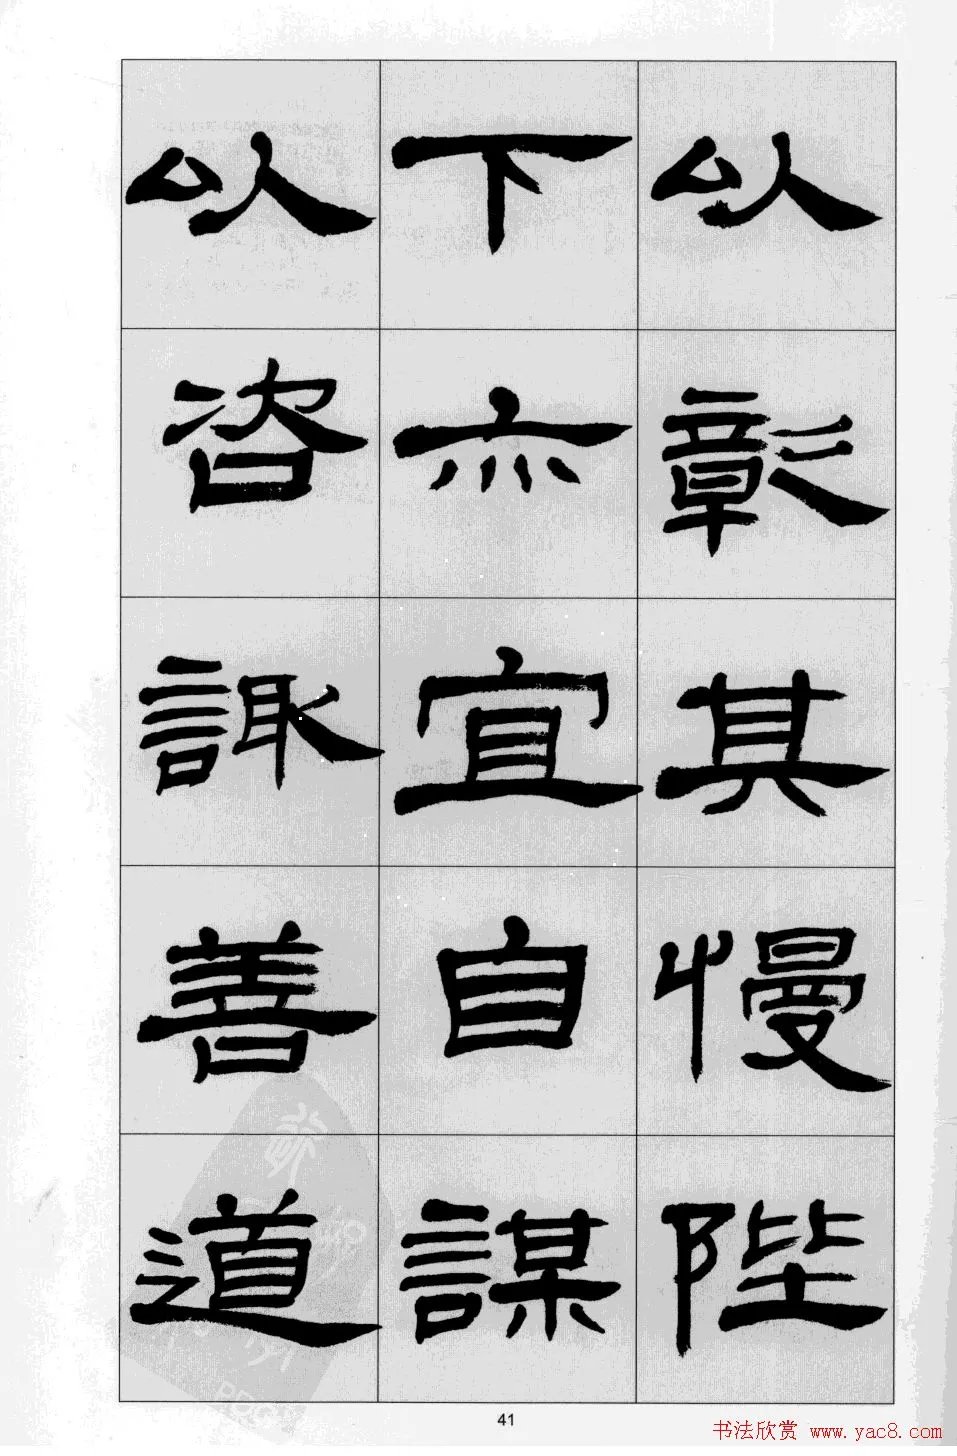 以彰其慢陛
下亦宜自謀
以咨諏善道
41
书法欣赏 www.yac8.com